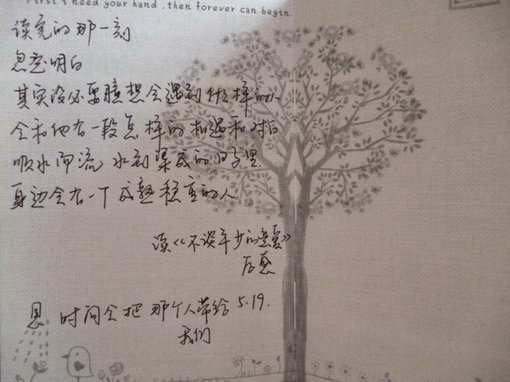 First I need your hand , then forever can begin.
读完的那一刻
忽然明白
其实没必要臆想会遇到什么样的人
会和他有一段怎样的相遇和对白
顺水而流 水到渠成的 时候
身边会有一个成熟稳重的人
读《不谈年少的爱》
后感
恩 时间会把那个人带给 5.19.
我们